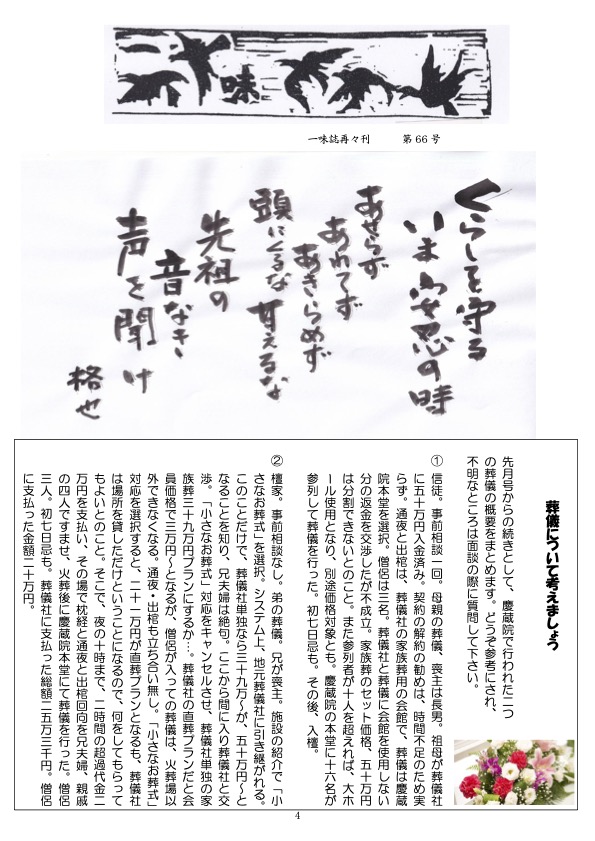 一味
一味誌再々刊　第66号
くらしを守る
いま安忍の時
あせらず
あわてず
あきらめず
頭にくるな 甘えるな
先祖の
音なき
声を聞け
格也
葬儀について考えましょう
先月号からの続きとして、慶蔵院で行われた二つ
の葬儀の概要をまとめます。どうぞ参考にされ、
不明なところは面談の際に質問して下さい。
① 信徒。事前相談一回。母親の葬儀、喪主は長男。祖母が葬儀社
に五十万円入金済み。契約の解約の勧めは、時間不足のため実
らず。通夜と出棺は、葬儀社の家族葬用の会館で、葬儀は慶蔵
院本堂を選択。僧侶は三名。葬儀社と葬儀に会館を使用しない
分の返金を交渉したが不成立。家族葬のセット価格、五十万円
は分割できないとのこと。また参列者が十人を超えれば、大ホ
ール使用となり、別途価格対象とも。慶蔵院の本堂に十六名が
参列して葬儀を行った。初七日忌も。その後、入檀。
② 檀家。事前相談なし。弟の葬儀。兄が喪主。施設の紹介で「小
さなお葬式」を選択。システム上、地元葬儀社に引き継がれる。
このことだけで、葬儀社単独なら三十九万～が、五十万円～と
なることを知り、兄夫婦は絶句。ここから間に入り葬儀社と交
渉。「小さなお葬式」対応をキャンセルさせ、葬儀社単独の家
族葬三十九万円プランにするか…。葬儀社の直葬プランだと会
員価格で三万円～となるが、僧侶が入っての葬儀は、火葬場以
外できなくなる。通夜・出棺も立ち合い無し。「小さなお葬式」
対応を選択すると、二十一万円が直葬プランとなるも、葬儀社
は場所を貸しただけということになるので、何をしてもらって
もよいとのこと。そこで、夜の十時まで、二時間の超過代金二
万円を支払い、その場で枕経と通夜と出棺回向を兄夫婦、親戚
の四人ですませ、火葬後に慶蔵院本堂にて葬儀を行った。僧侶
三人。初七日忌も。葬儀社に支払った総額二五万三千円。僧侶
に支払った金額二十万円。
4